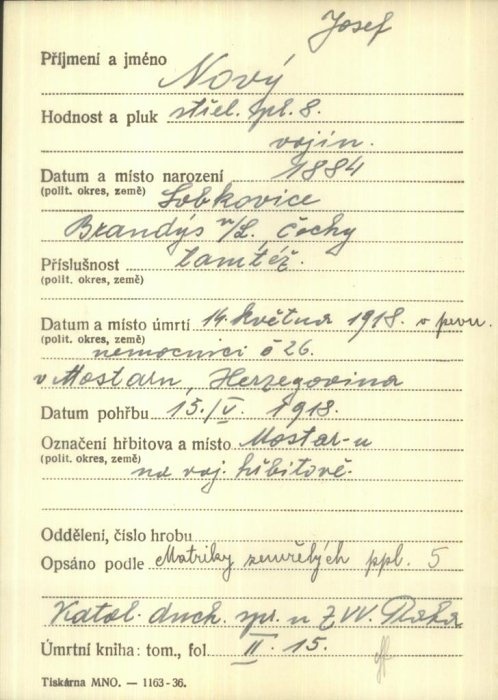 Josef
Příjmení a jméno
Nový
Hodnost a pluk střel. pl. 8.
vojín.
Datum a místo narození 1884
(polit. okres, země) Lobkovice
Brandýs n/L. Čechy
Příslušnost tamtéž.
(polit. okres, země)
Datum a místo úmrtí 14. května 1918. v pevn.
(polit. okres, země) nemocnici č 26.
v Mostaru, Herzegovina
Datum pohřbu 15./V. 1918.
Označení hřbitova a místo Mostar-u
(polit. okres, země) na voj. hřbitově.
Oddělení, číslo hrobu
Opsáno podle Matriky zemřelých ppl. 5
Katol. duch. spr. u ZVV. Praha
Úmrtní kniha: tom., fol. II. 15.
Tiskárna MNO. — 1163-36.